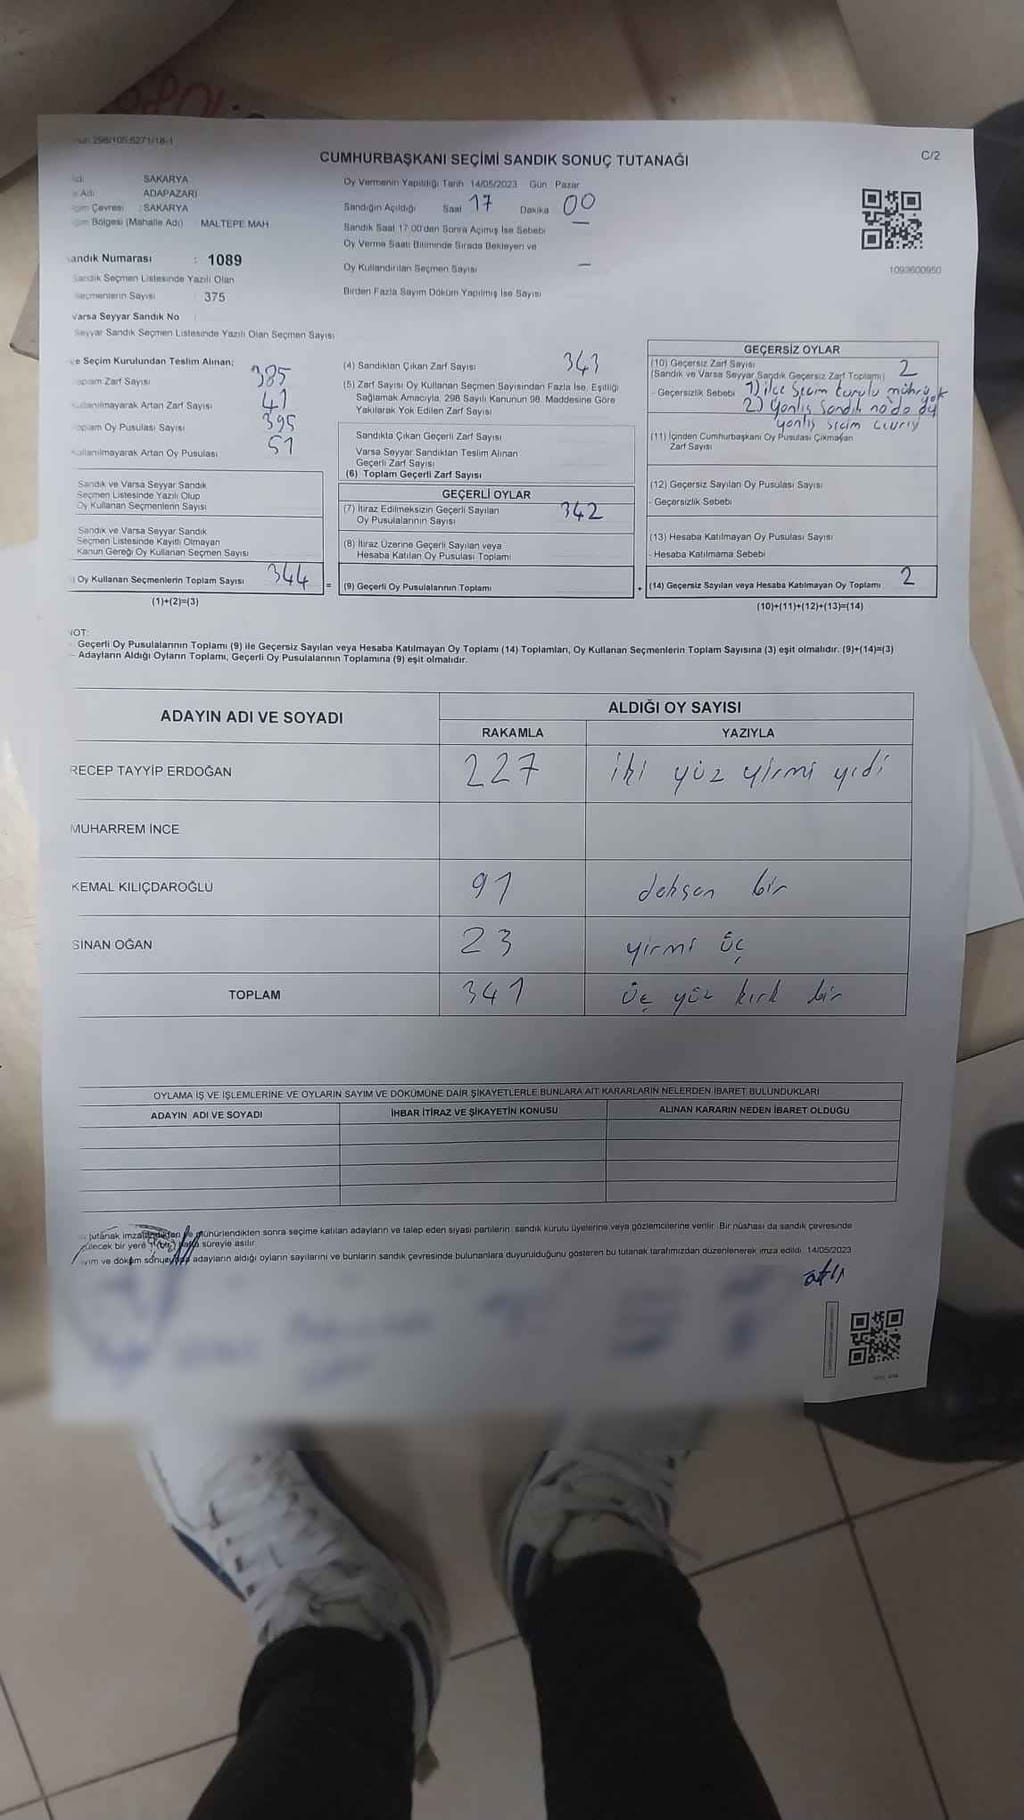 298/105.6271/18-1
CUMHURBAŞKANI SEÇİMİ SANDIK SONUÇ TUTANAĞI
C/2
SAKARYA
Adı ADAPAZARI
Çevresi : SAKARYA
Bölgesi (Mahalle Adı) MALTEPE MAH
Sandık Numarası : 1089
Sandık Seçmen Listesinde Yazılı Olan
Seçmenlerin Sayısı 375
Varsa Seyyar Sandık No
Seyyar Sandık Seçmen Listesinde Yazılı Olan Seçmen Sayısı
Oy Vermenin Yapıldığı Tarih 14/05/2023 Gün Pazar
Sandığın Açıldığı Saat 17 Dakika 00
Sandık Saat 17:00'den Sonra Açılmış İse Sebebi —
Oy Verme Saati Bitiminde Sırada Bekleyen ve
Oy Kullandırılan Seçmen Sayısı —
Birden Fazla Sayım Döküm Yapılmış İse Sayısı
1093600950
İlçe Seçim Kurulundan Teslim Alınan;
Toplam Zarf Sayısı 385
Kullanılmayarak Artan Zarf Sayısı 41
Toplam Oy Pusulası Sayısı 395
Kullanılmayarak Artan Oy Pusulası 51
Sandık ve Varsa Seyyar Sandık
Seçmen Listesinde Yazılı Olup
Oy Kullanan Seçmenlerin Sayısı
Sandık ve Varsa Seyyar Sandık
Seçmen Listesinde Kayıtlı Olmayan
Kanun Gereği Oy Kullanan Seçmen Sayısı
Oy Kullanan Seçmenlerin Toplam Sayısı 344
(1)+(2)=(3)
=
(4) Sandıktan Çıkan Zarf Sayısı 343
(5) Zarf Sayısı Oy Kullanan Seçmen Sayısından Fazla İse, Eşitliği
Sağlamak Amacıyla, 298 Sayılı Kanunun 98. Maddesine Göre
Yakılarak Yok Edilen Zarf Sayısı
Sandıkta Çıkan Geçerli Zarf Sayısı
Varsa Seyyar Sandıktan Teslim Alınan
Geçerli Zarf Sayısı
(6) Toplam Geçerli Zarf Sayısı
GEÇERLİ OYLAR
(7) İtiraz Edilmeksizin Geçerli Sayılan
Oy Pusulalarının Sayısı 342
(8) İtiraz Üzerine Geçerli Sayılan veya
Hesaba Katılan Oy Pusulası Toplamı
(9) Geçerli Oy Pusulalarının Toplamı
+
GEÇERSİZ OYLAR
(10) Geçersiz Zarf Sayısı
(Sandık ve Varsa Seyyar Sandık Geçersiz Zarf Toplamı) 2
- Geçersizlik Sebebi 1) ilçe Seçim kurulu mührü yok
2) Yanlış Sandık no da oy
yanlış seçim çevriy
(11) İçinden Cumhurbaşkanı Oy Pusulası Çıkmayan
Zarf Sayısı
(12) Geçersiz Sayılan Oy Pusulası Sayısı
- Geçersizlik Sebebi
(13) Hesaba Katılmayan Oy Pusulası Sayısı
- Hesaba Katılmama Sebebi
(14) Geçersiz Sayılan veya Hesaba Katılmayan Oy Toplamı 2
(10)+(11)+(12)+(13)=(14)
NOT:
Geçerli Oy Pusulalarının Toplamı (9) ile Geçersiz Sayılan veya Hesaba Katılmayan Oy Toplamı (14) Toplamları, Oy Kullanan Seçmenlerin Toplam Sayısına (3) eşit olmalıdır. (9)+(14)=(3)
- Adayların Aldığı Oyların Toplamı, Geçerli Oy Pusulalarının Toplamına (9) eşit olmalıdır.
ADAYIN ADI VE SOYADI
ALDIĞI OY SAYISI
RAKAMLA YAZIYLA
RECEP TAYYİP ERDOĞAN 227 iki yüz yirmi yedi
MUHARREM İNCE
KEMAL KILIÇDAROĞLU 91 doksan bir
SİNAN OĞAN 23 yirmi üç
TOPLAM 341 üç yüz kırk bir
OYLAMA İŞ VE İŞLEMLERİNE VE OYLARIN SAYIM VE DÖKÜMÜNE DAİR ŞİKAYETLERLE BUNLARA AİT KARARLARIN NELERDEN İBARET BULUNDUKLARI
ADAYIN ADI VE SOYADI İHBAR İTİRAZ VE ŞİKAYETİN KONUSU ALINAN KARARIN NEDEN İBARET OLDUĞU
tutanak imzalandıktan ve mühürlendikten sonra seçime katılan adayların ve talep eden siyasi partilerin, sandık kurulu üyelerine veya gözlemcilerine verilir. Bir nüshası da sandık çevresinde
bir yere 1 (bir) hafta süreyle asılır.
ve döküm sonucunda adayların aldığı oyların sayılarını ve bunların sandık çevresinde bulunanlara duyurulduğunu gösteren bu tutanak tarafımızdan düzenlenerek imza edildi. 14/05/2023